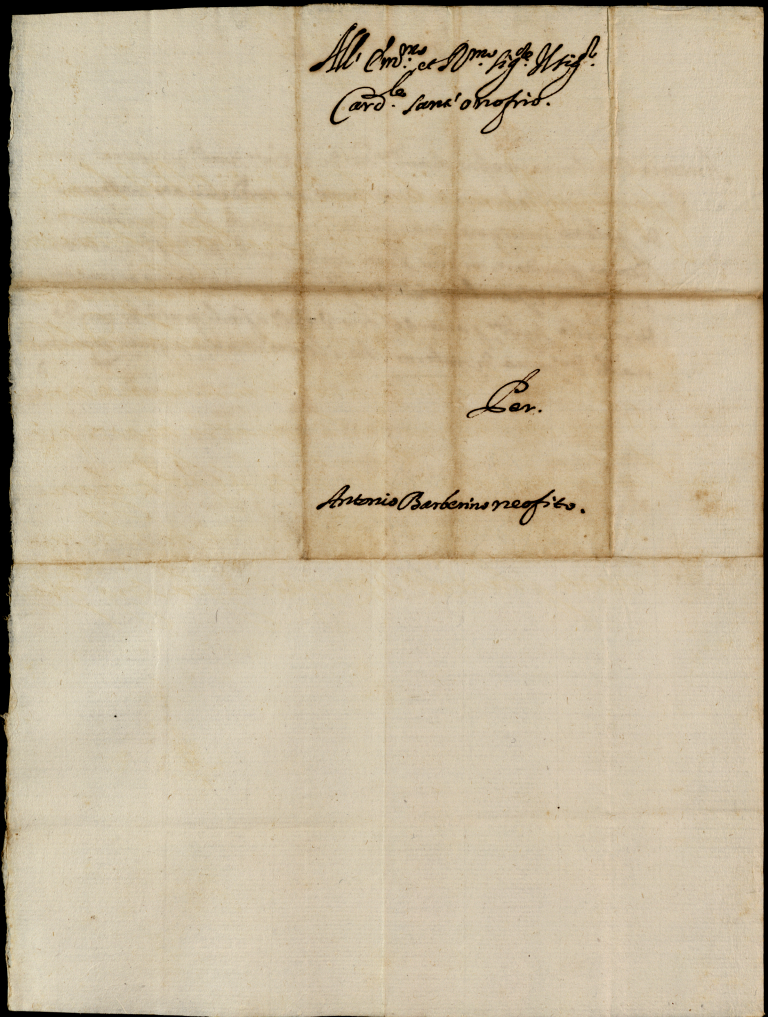 All' Em.mo et R.mo sig.re Il sig.r
Card.le sant' onofrio.
Per.
Antonio Barberino neofito.